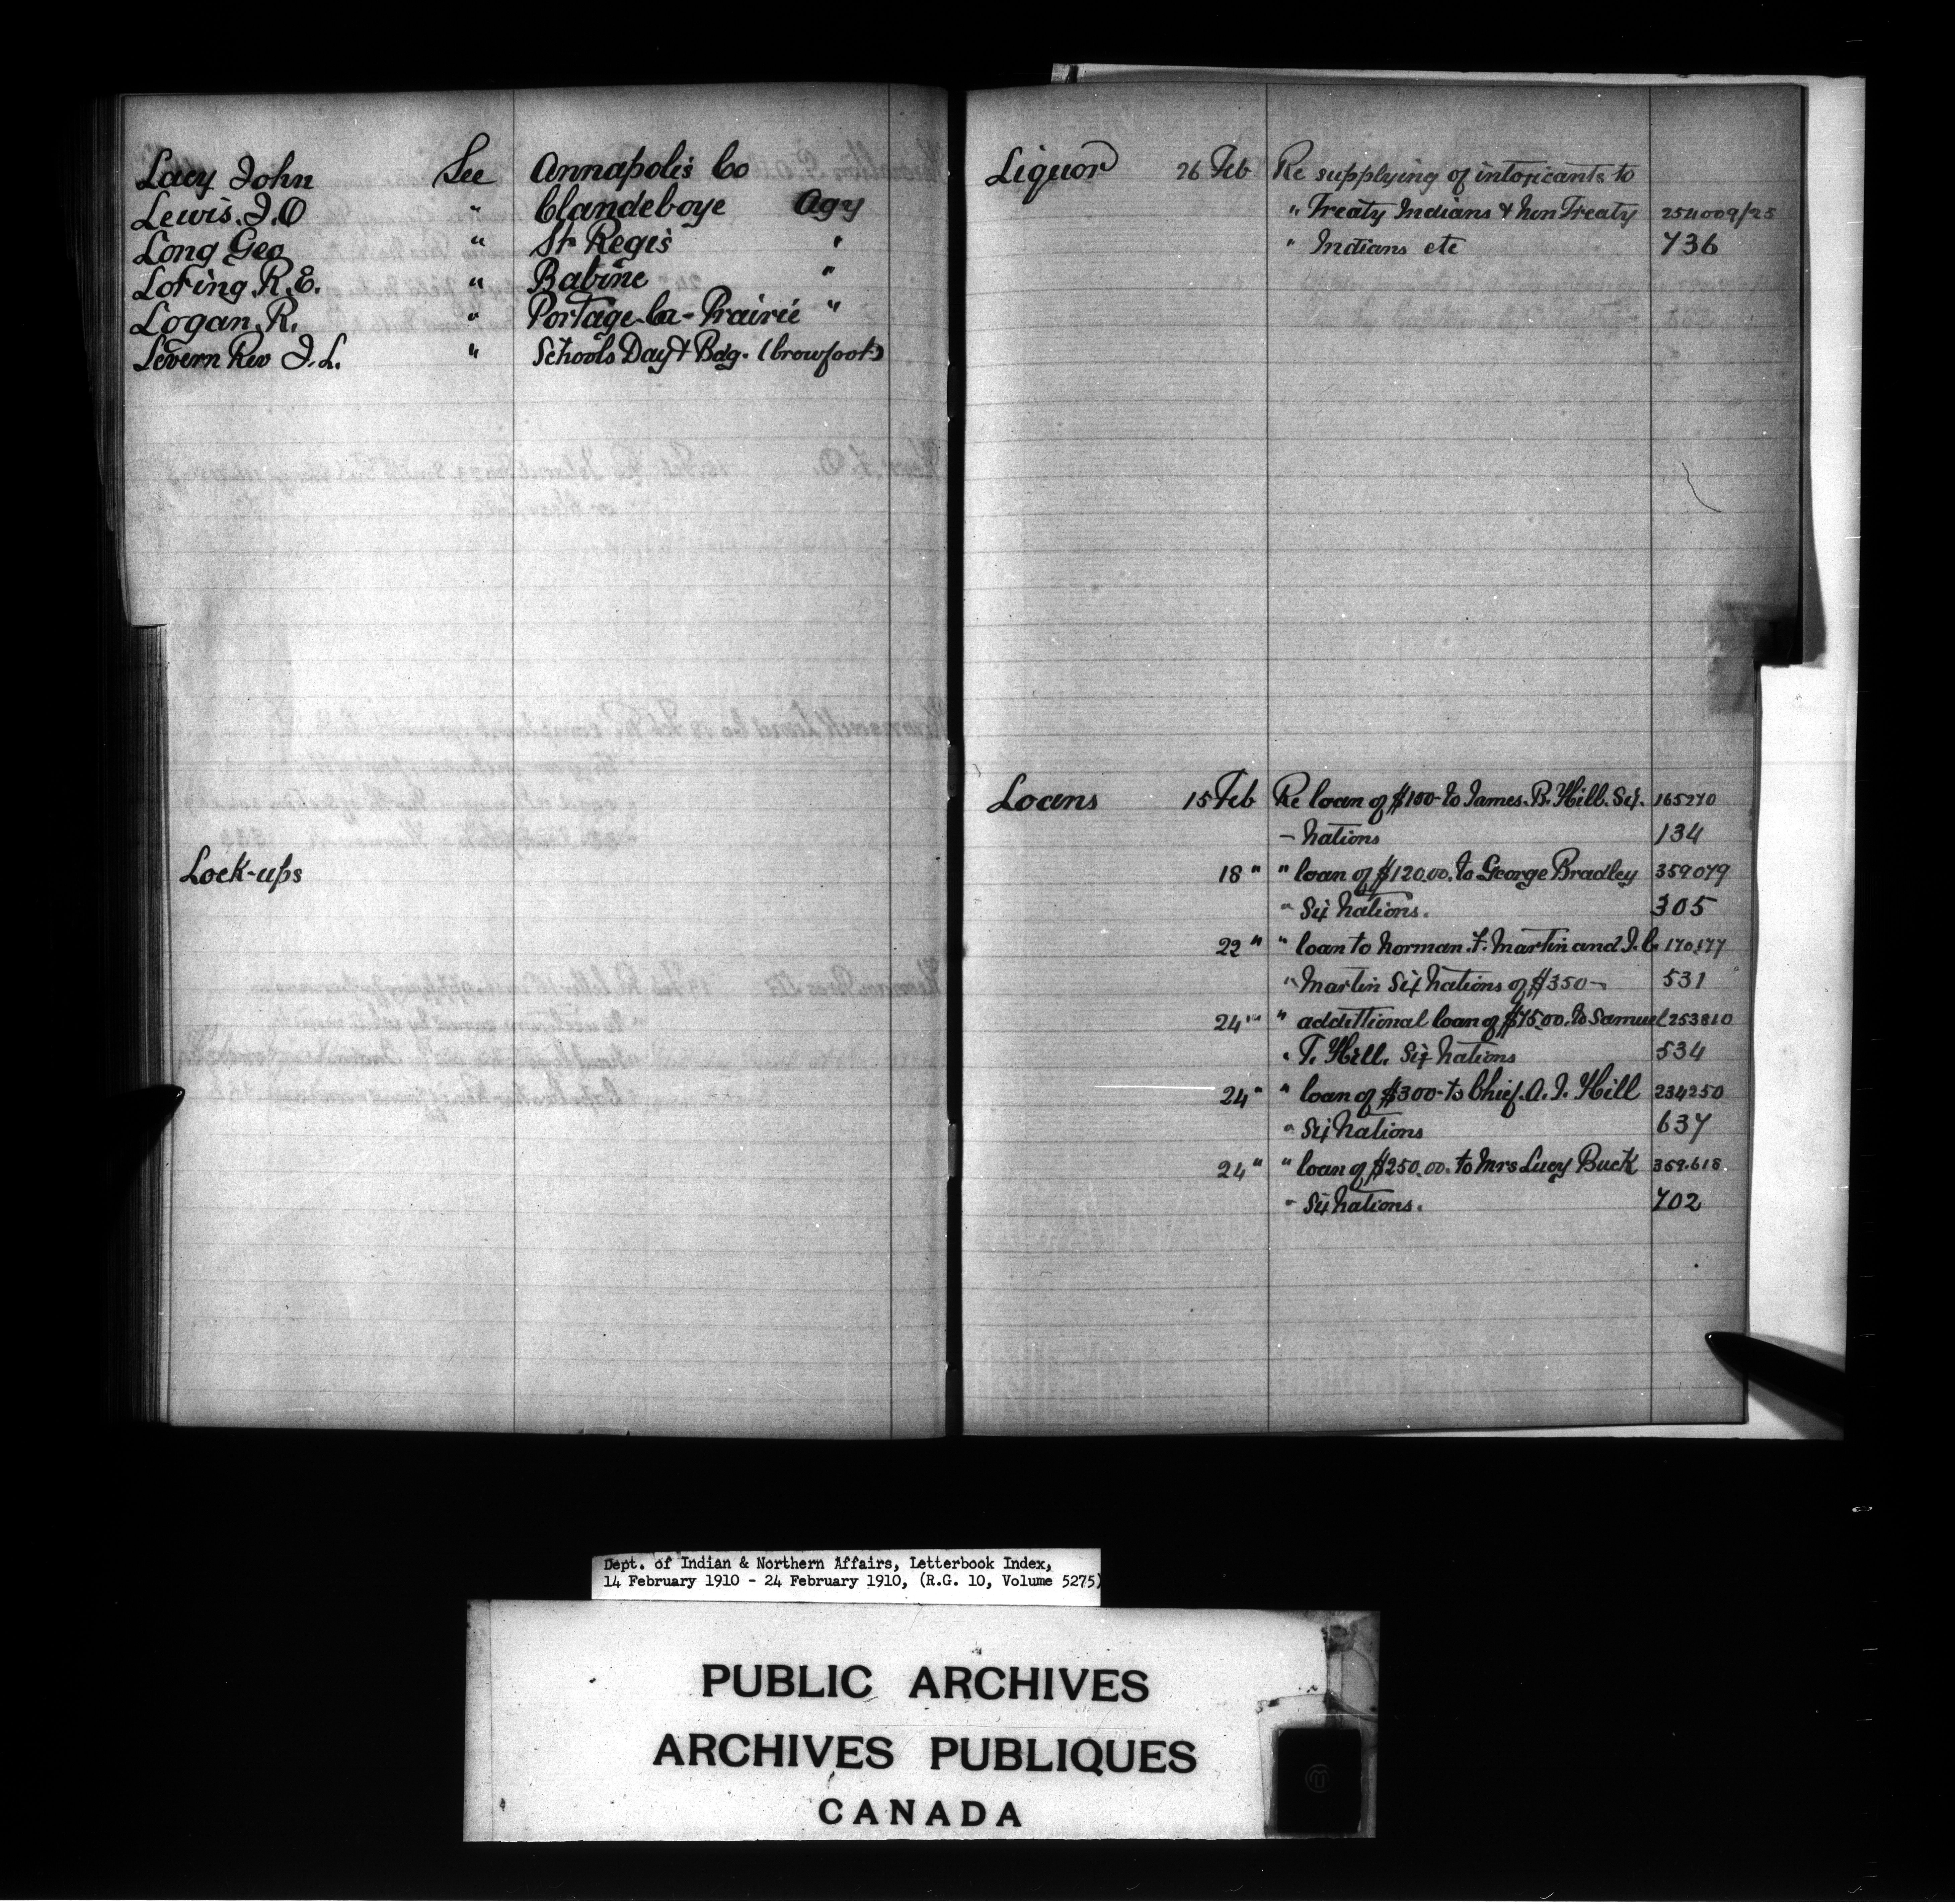 Lacy John See Annapolis Co
Lewis. J. O " Clandeboye Agy
Long Geo " St Regis "
Loring R. E. " Babine "
Logan. R. " Portage-la-Prairie "
Levern Rev J. L. " Schools Day & Bdg. (Crowfoot)
Lock-ups
Liquor 26 Feb Re supplying of intoxicants to
" Treaty Indians & Non Treaty 254009/25
" Indians etc 736
Loans 15 Feb Re loan of $100- to James. B. Hill. Six. 165270
- Nations 134
18 " " loan of $120.00. to George Bradley 359079
" Six Nations. 305
22 " " loan to Norman. F. Martin and J. C. 170,177
" Martin Six Nations of $350- 531
24 " " additional loan of $75.00. to Samuel 253810
" T. Hill. Six Nations 534
24 " " loan of $300- to Chief. A. J. Hill 234250
" Six Nations 637
24 " " loan of $250.00. to Mrs Lucy Buck 359.618
" Six Nations. 702
Dept. of Indian & Northern Affairs, Letterbook Index,
14 February 1910 - 24 February 1910, (R.G. 10, Volume 5275)
PUBLIC ARCHIVES
ARCHIVES PUBLIQUES
CANADA